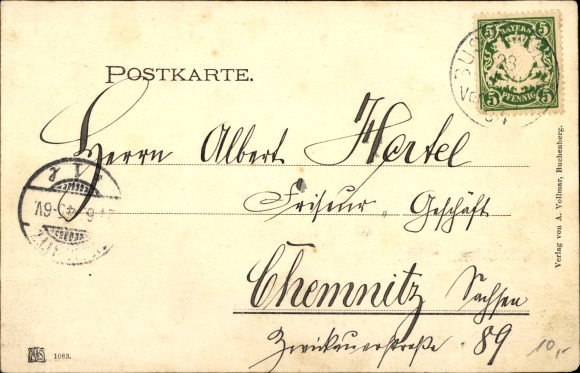 POSTKARTE.
BAYERN
5 5
5 PFENNIG 5
Herrn Albert Hertel
Friseur Geschäft
Chemnitz Sachsen
Zwickauerstraße 89
Verlag von A. Vollmar, Buchenberg.
1083.
10,-